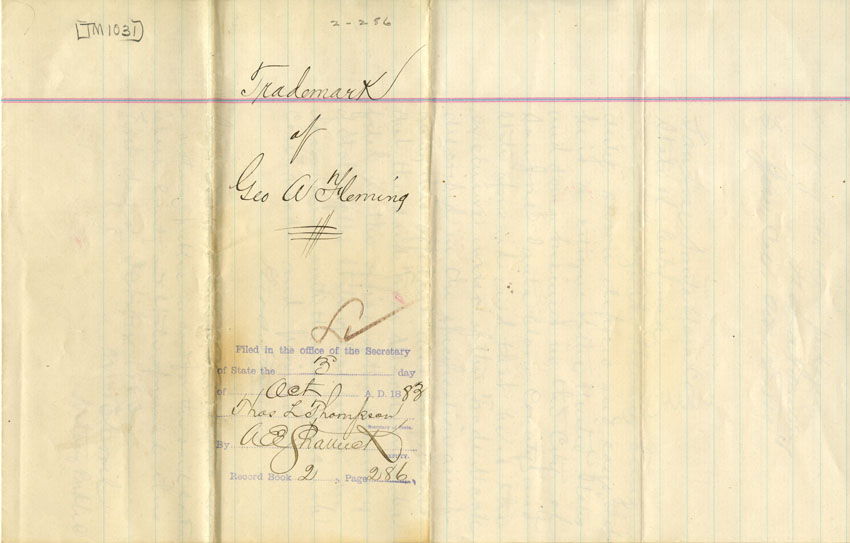 [TM1031]
2-286
Trademark
of
Geo A Fleming
Filed in the office of the Secretary
of State the 3 day
of Oct A. D. 18 83
Thos L Thompson
Secretary of State.
By A E Shattuck
DEPUTY.
Record Book 2, Page 286,